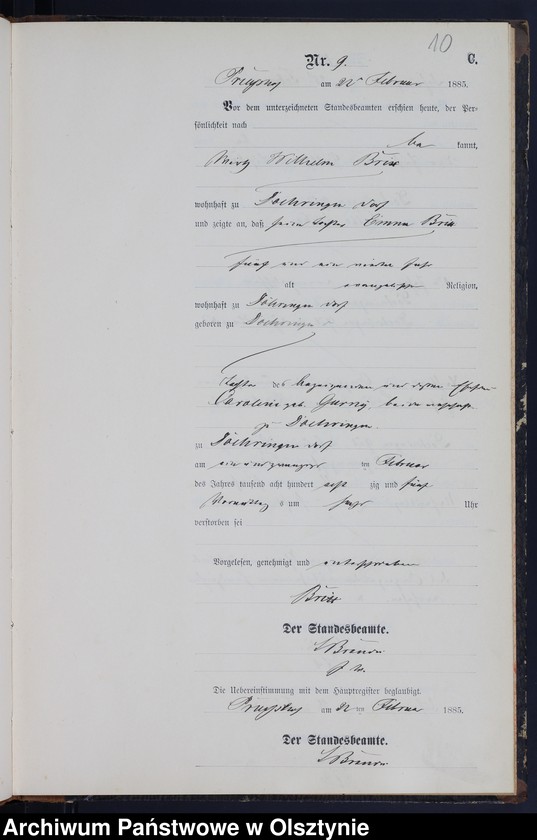 10
Nr. 9. C.
am 22 Februar 1885.
Vor dem unterzeichneten Standesbeamten erschien heute, der Per-
sönlichkeit nach
be kannt,
Wirth Wilhelm Brix
wohnhaft zu Döhringen Dorf
und zeigte an, daß seine Tochter Emma Brix
fünf und ein viertel Jahr
alt evangelischer Religion,
wohnhaft zu Döhringen Dorf
geboren zu Doehringen
Tochter des Anzeigenden und dessen Ehefrau
Caroline geb. beide wohnhaft
zu Döhringen
zu Döhringen Dorf
am ein und zwanzigsten ten Februar
des Jahres tausend acht hundert acht zig und fünf
Vormittags um Uhr
verstorben sei
Vorgelesen, genehmigt und unterschrieben
Brix
Der Standesbeamte.
Die Uebereinstimmung mit dem Hauptregister beglaubigt.
am 22 ten Februar 1885.
Der Standesbeamte.
Archiwum Państwowe w Olsztynie